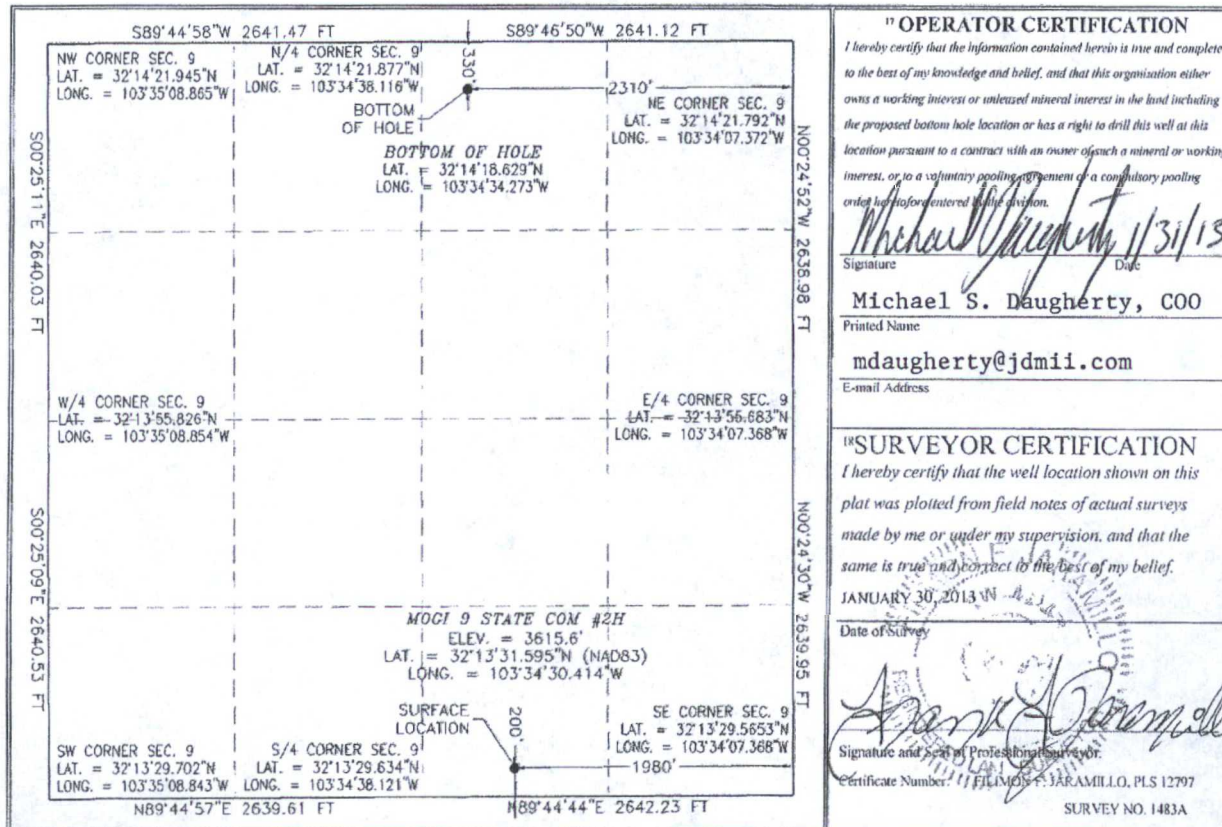 S89°44'58"W 2641.47 FT
S89°46'50"W 2641.12 FT
NW CORNER SEC. 9
LAT. = 32°14'21.945"N
LONG. = 103°35'08.865"W
N/4 CORNER SEC. 9
LAT. = 32°14'21.877"N
LONG. = 103°34'38.116"W
330'
2310'
BOTTOM
OF HOLE
NE CORNER SEC. 9
LAT. = 32°14'21.792"N
LONG. = 103°34'07.372"W
BOTTOM OF HOLE
LAT. = 32°14'18.629"N
LONG. = 103°34'34.273"W
S00°25'11"E 2640.03 FT
N00°24'52"W 2638.98 FT
W/4 CORNER SEC. 9
LAT. = 32°13'55.826"N
LONG. = 103°35'08.854"W
E/4 CORNER SEC. 9
LAT. = 32°13'55.683"N
LONG. = 103°34'07.368"W
S00°25'09"E 2640.53 FT
N00°24'30"W 2639.95 FT
MOGI 9 STATE COM #2H
ELEV. = 3615.6'
LAT. = 32°13'31.595"N (NAD83)
LONG. = 103°34'30.414"W
SURFACE
LOCATION
200'
1980'
SW CORNER SEC. 9
LAT. = 32°13'29.702"N
LONG. = 103°35'08.843"W
S/4 CORNER SEC. 9
LAT. = 32°13'29.634"N
LONG. = 103°34'38.121"W
SE CORNER SEC. 9
LAT. = 32°13'29.5653"N
LONG. = 103°34'07.368"W
N89°44'57"E 2639.61 FT
N89°44'44"E 2642.23 FT
17 OPERATOR CERTIFICATION
I hereby certify that the information contained herein is true and complete
to the best of my knowledge and belief, and that this organization either
owns a working interest or unleased mineral interest in the land including
the proposed bottom hole location or has a right to drill this well at this
location pursuant to a contract with an owner of such a mineral or working
interest, or to a voluntary pooling agreement or a compulsory pooling
order heretofore entered by the division.
Michael S Daugherty 1/31/13
Signature Date
Michael S. Daugherty, COO
Printed Name
mdaugherty@jdmii.com
E-mail Address
18 SURVEYOR CERTIFICATION
I hereby certify that the well location shown on this
plat was plotted from field notes of actual surveys
made by me or under my supervision, and that the
same is true and correct to the best of my belief.
JANUARY 30, 2013
Date of Survey
Signature and Seal of Professional Surveyor:
Certificate Number: FILIMON F. JARAMILLO, PLS 12797
SURVEY NO. 1483A